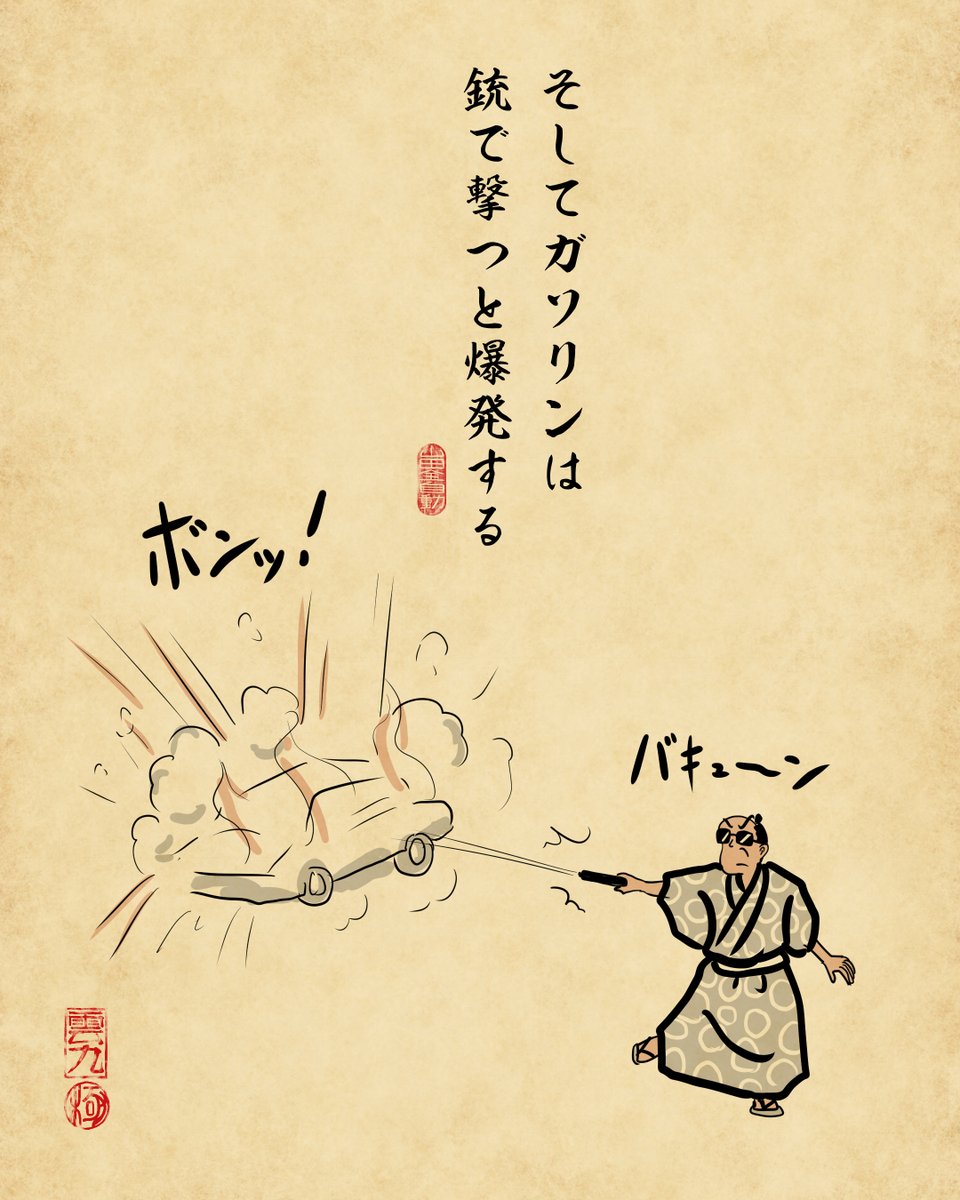 そしてガソリンは
銃で撃つと爆発する
ボンッ!
バキュ〜ン
雲九
極